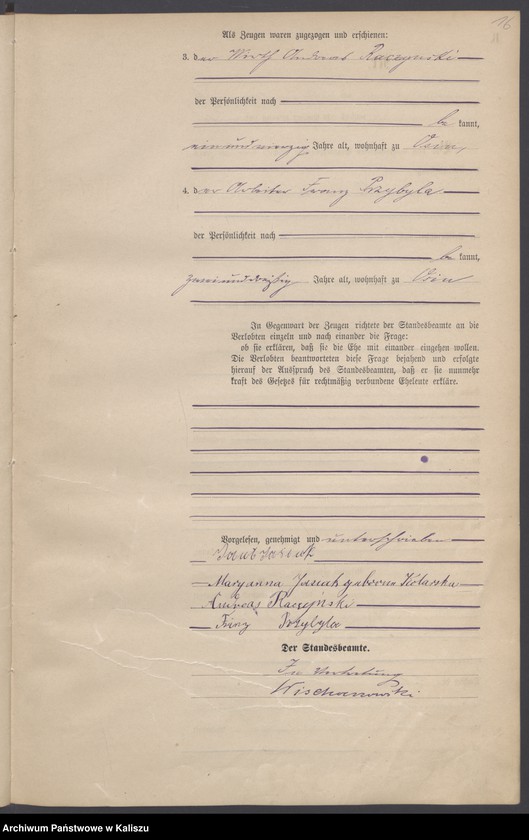 16
Als Zeugen waren zugezogen und erschienen:
3. der Wirth Andreas Raczynski
der Persönlichkeit nach
be kannt,
einundvierzig Jahre alt, wohnhaft zu Osin,
4. der Arbeiter Franz Przybyla
der Persönlichkeit nach
be kannt,
zweiunddreißig Jahre alt, wohnhaft zu Osin
In Gegenwart der Zeugen richtete der Standesbeamte an die
Verlobten einzeln und nach einander die Frage:
ob sie erklären, daß sie die Ehe mit einander eingehen wollen.
Die Verlobten beantworteten diese Frage bejahend und erfolgte
hierauf der Ausspruch des Standesbeamten, daß er sie nunmehr
kraft des Gesetzes für rechtmäßig verbundene Eheleute erkläre.
Vorgelesen, genehmigt und unterschrieben
Maryanna Jasiak geborene
Andreas Raczyński
Franz Przybyla
Der Standesbeamte.
In Vertretung
Wischanowski
Archiwum Państwowe w Kaliszu